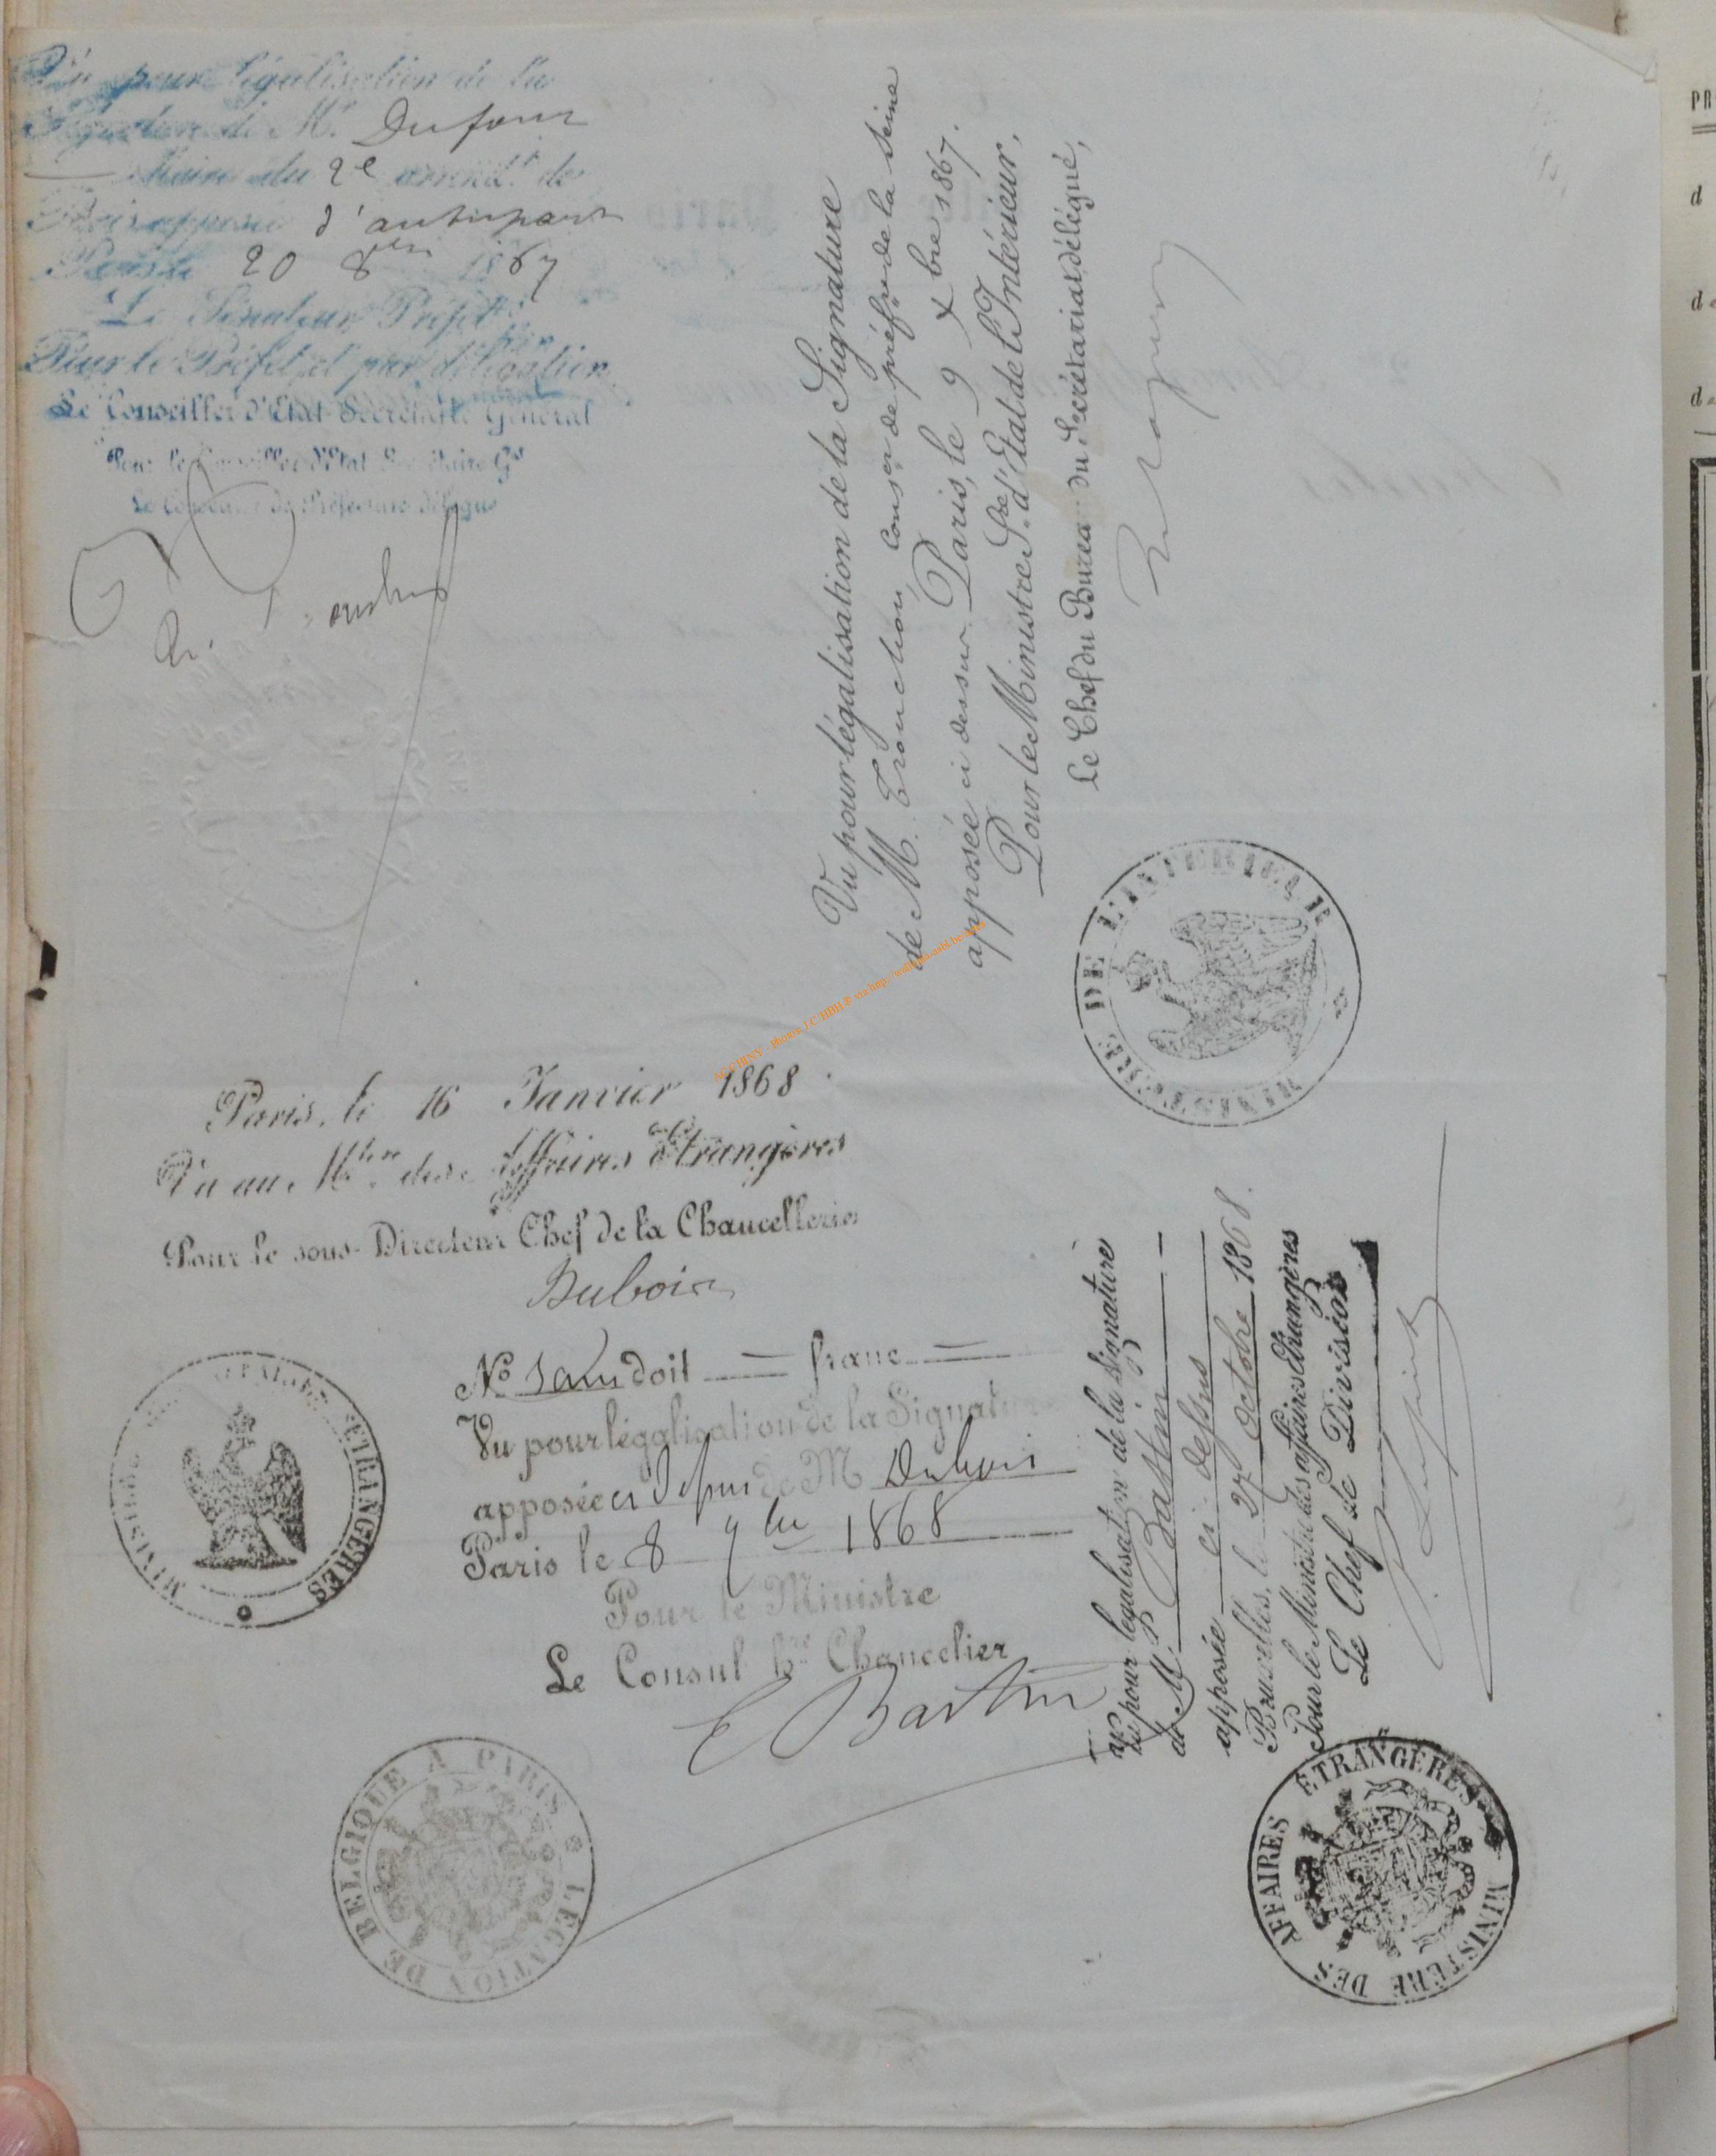 Vu pour légalisation de la
Signature de M. Dufour
Maire du 2e arrondt. de
Paris apposée d'autre part
Paris le 20 8bre 1867
Le Sénateur Préfet
Pour le Préfet et par délégation
Le Conseiller d'Etat Secrétaire Général
Pour le Conseiller d'Etat Secrétaire Gal
Le Conseiller de Préfecture délégué
Vu pour légalisation de la Signature
de M. Tronchon, conser. de préfre. de la Seine
apposée ci dessus Paris, le 9 Xbre 1867.
Pour le Ministre Sre. d'Etat de l'Intérieur,
Le Chef du Bureau du Secrétariat délégué,
MINISTERE DE L'INTERIEUR
Paris, le 16 Janvier 1868
Vu au Mtère des Affaires étrangères
Pour le sous-Directeur Chef de la Chancellerie
Dubois
MINISTERE DES AFFAIRES ETRANGERES
No sans doit = franc =
Vu pour légalisation de la Signature
apposée ci dessus de M Dubois
Paris le 8 7bre 1868
Pour le Ministre
Le Consul hre Chancelier
E Bastin
LEGATION DE BELGIQUE A PARIS
Vu pour légalisation de la Signature
de M. Bastin
apposée ci-dessus
Bruxelles, le 27 Octobre 1868.
Pour le Ministre des affaires Etrangères
Le Chef de Division
MINISTERE DES AFFAIRES ETRANGERES
PR
d
d
d